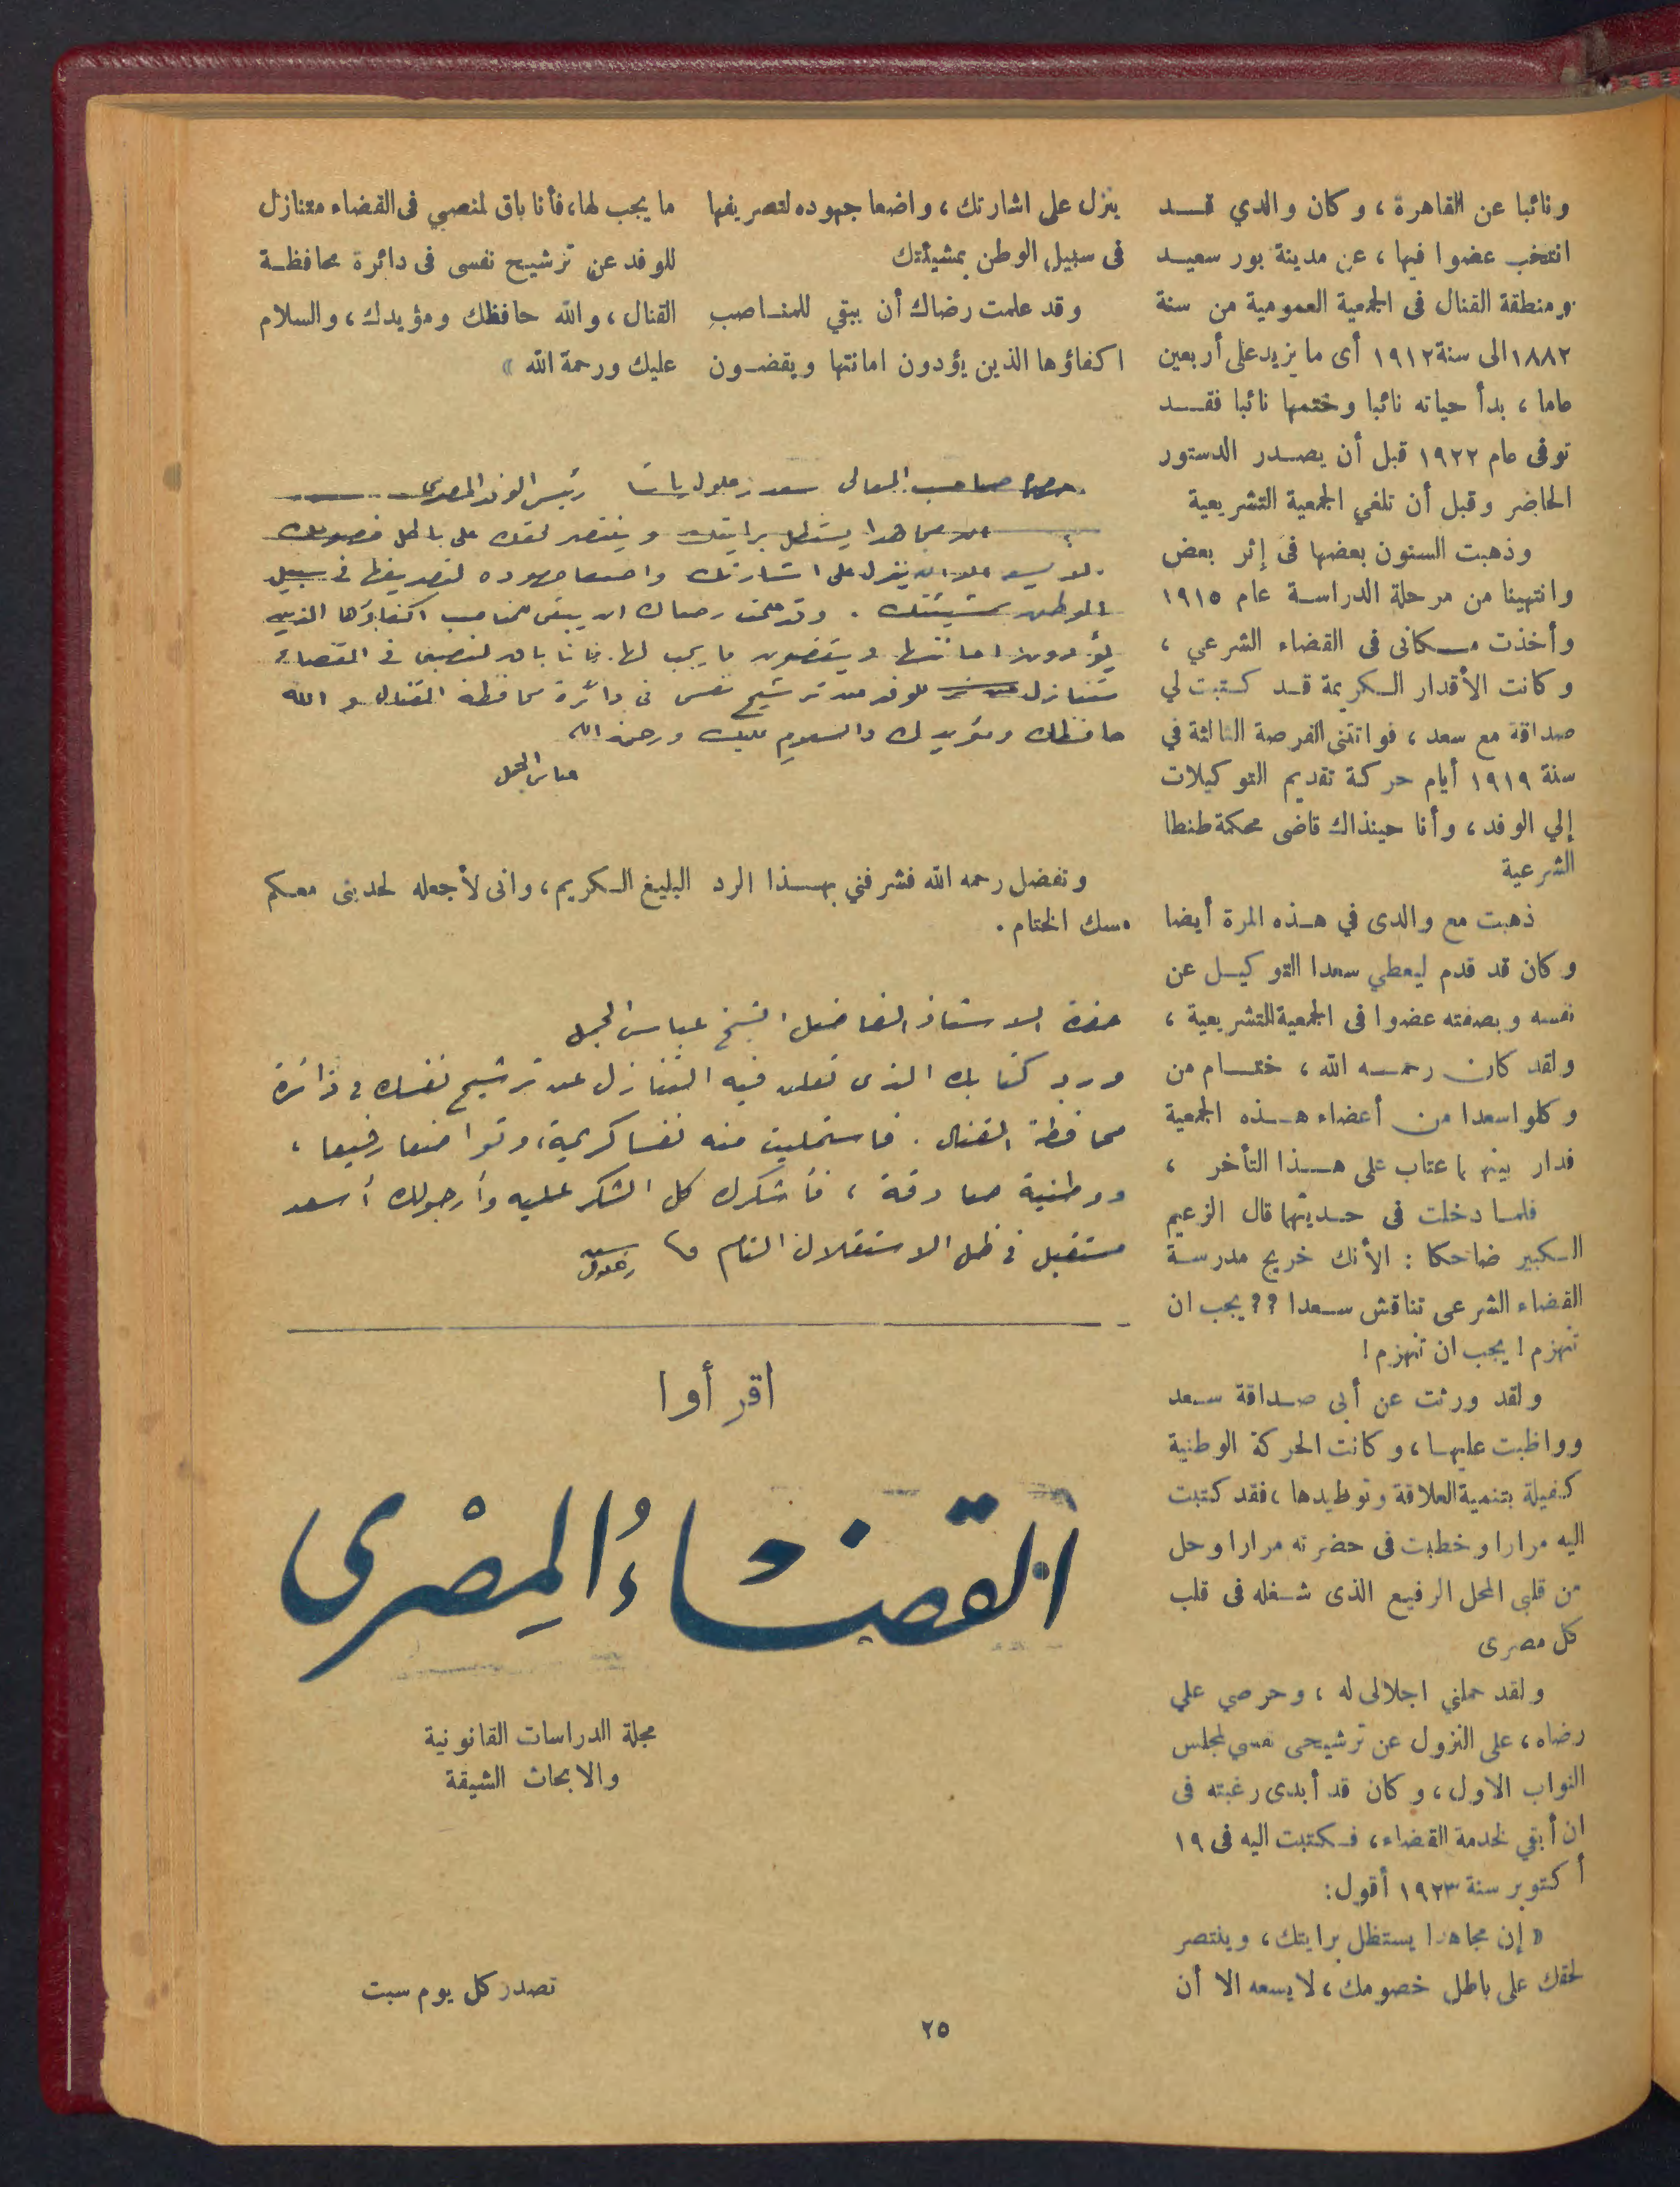 ونائبا عن القاهرة ، وكان والدي قد
انتخب عضوا فيها ، عن مدينة بور سعيد
ومنطقة القنال فى الجمعية العمومية من سنة
١٨٨٢ الى سنة ١٩١٢ أى ما يزيد على أربعين
عاما ، بدأ حياته نائبا وختمها نائبا فقد
توفى عام ١٩٢٢ قبل أن يصدر الدستور
الحاضر وقبل أن تلغي الجمعية التشريعية
وذهبت السنون بعضها فى إثر بعض
وانتهينا من مرحلة الدراسة عام ١٩١٥
وأخذت مكانى فى القضاء الشرعي ،
وكانت الأقدار الكريمة قد كتبت لي
صداقة مع سعد ، فواتتنى الفرصة الثالثة في
سنة ١٩١٩ أيام حركة تقديم التوكيلات
إلي الوفد ، وأنا حينذاك قاضى محكمة طنطا
الشرعية
ذهبت مع والدى في هذه المرة أيضا
وكان قد قدم ليعطي سعدا التوكيل عن
نفسه وبصفته عضوا فى الجمعية التشريعية ،
ولقد كان رحمه الله ، ختام من
وكلوا سعدا من أعضاء هذه الجمعية
فدار بينهما عتاب على هذا التأخر ،
فلما دخلت فى حديثهما قال الزعيم
الكبير ضاحكا : الأنك خريج مدرسة
القضاء الشرعى تناقش سعدا ؟؟ يجب ان
تنهزم ! يجب ان تنهزم !
ولقد ورثت عن أبى صداقة سعد
وواظبت عليها ، وكانت الحركة الوطنية
كفيلة بتنمية العلاقة وتوطيدها ، فقد كتبت
اليه مرارا وخطبت فى حضرته مرارا وحل
من قلبى المحل الرفيع الذى شغله فى قلب
كل مصرى
ولقد حملني اجلالى له ، وحرصي علي
رضاه ، على النزول عن ترشيحى نفسي لمجلس
النواب الاول ، وكان قد أبدى رغبته فى
ان أبقي لخدمة القضاء ، فكتبت اليه فى ١٩
أكتوبر سنة ١٩٢٣ أقول :
« إن مجاهدا يستظل برايتك ، وينتصر
لحقك على باطل خصومك ، لا يسعه الا أن
ينزل على اشارتك ، واضعا جهوده لتصريفها
فى سبيل الوطن بمشيئتك
وقد علمت رضاك أن يبقي للمناصب
اكفاؤها الذين يؤدون امانتها ويقضون
ما يجب لها ، فأنا باق لمنصبي فى القضاء متنازل
للوفد عن ترشيح نفسى فى دائرة محافظة
القنال ، والله حافظك ومؤيدك ، والسلام
عليك ورحمة الله »
حضرة صاحب المعالى سعد زغلول باشا رئيس الوفد المصرى
ان مجاهدا يستظل برايتك وينتصر لحقك على باطل خصومك
لا يسعه الا ان ينزل على اشارتك واضعا جهوده لتصريفها فى سبيل
الوطن بمشيئتك . وقد علمت رضاك ان يبقى للمناصب اكفاؤها الذين
يؤدون امانتها ويقضون ما يجب لها . فانا باق لمنصبى فى القضاء
متنازل للوفد عن ترشيح نفسى فى دائرة محافظة القنال والله
حافظك ومؤيدك والسلام عليك ورحمة الله
عباس الجمل
وتفضل رحمه الله فشرفني بهذا الرد البليغ الكريم ، وانى لأجعله لحديثى معكم
مسك الختام .
حضرة الاستاذ الفاضل الشيخ عباس الجمل
ورد كتابك الذى تعلن فيه التنازل عن ترشيح نفسك فى دائرة
محافظة القنال . فاستجليت منه نفسا كريمة ، وتواضعا رفيعا ،
ووطنية صادقة ، فأشكرك كل الشكر عليه وأرجو لك أسعد
مستقبل فى ظل الاستقلال التام
سعد زغلول
اقرأوا
القضاءُ المِصْرى
مجلة الدراسات القانونية
والابحاث الشيقة
تصدر كل يوم سبت
٢٥